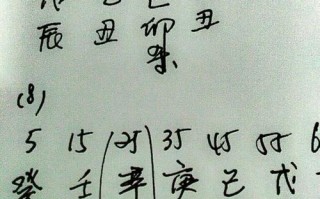 辰 丑 卯 丑
(8)
5 15 25 35 45 55 6
癸 壬 辛 庚 己 戊